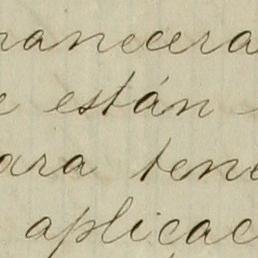 ranecera
e están
ara tene
aplicac